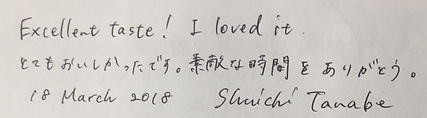 Excellent taste! I loved it.
とてもおいしかったです。素敵な時間をありがとう。
18 March 2018 Shuichi Tanabe